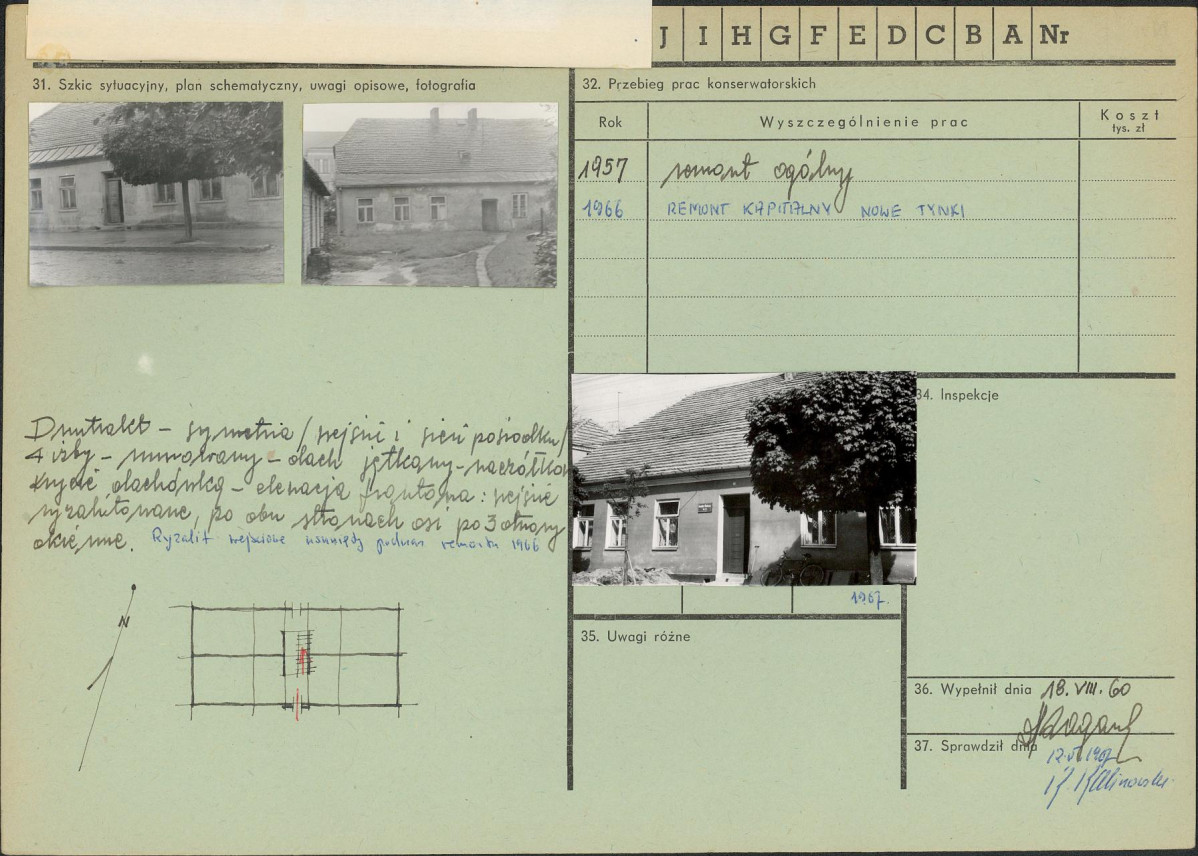 J I H G F E D C B A Nr
31. Szkic sytuacyjny, plan schematyczny, uwagi opisowe, fotografia
32. Przebieg prac konserwatorskich
Rok
Wyszczególnienie prac
Koszt
tys. zł
1957 remont ogólny
1966 REMONT KAPITALNY NOWE TYNKI
Dwutrakt – symetria / wejście i sień pośrodku /
4 izby – murowany – dach jętkowy – naczółkow
kryty dachówką – elewacja frontowa: wejście
wyzalitowane, po obu stronach osi po 3 otwory
okienne. Ryzalit wejściowy usunięty podczas remontu 1966
N
1967.
34. Inspekcje
35. Uwagi różne
36. Wypełnił dnia 18. VIII. 60
37. Sprawdził dnia
1967
K. Kalinowski